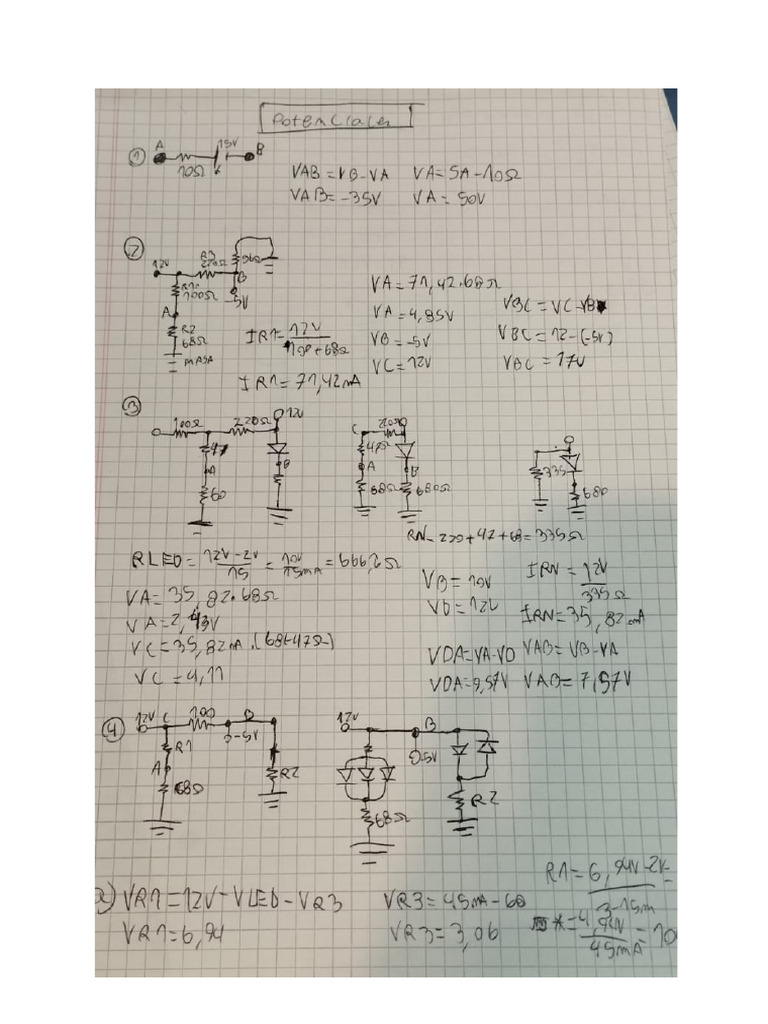 Potenciales
1
A
15V
B
10Ω
VAB = VB-VA
VA = 5A-10Ω
VAB = -35V
VA = 50V
2
12V
R3
220Ω
B
R1
100Ω
-5V
A
R2
68Ω
MASA
IR1 = 12V
100+68Ω
IR1 = 71,42mA
VA = 71,42.68Ω
VA = 4,85V
VB = -5V
VC = 12V
VBC = VC-VB
VBC = 12-(-5V)
VBC = 17V
3
100Ω
220Ω
12V
47
A
B
60
C
220Ω
47Ω
A
B
68Ω
680Ω
335
680
RN = 220+47+68 = 335Ω
RLED = 12V-2V = 10V = 666,6Ω
15
15mA
VA = 35,82.68Ω
VA = 2,43V
VC = 35,82mA.(68+47Ω)
VC = 4,11
VB = 10V
VD = 12V
IRN = 12V
335Ω
IRN = 35,82mA
VDA = VA-VD
VAB = VB-VA
VDA = 9,57V
VAB = 7,57V
4
12V
C
100
B
-5V
R1
A
68Ω
R2
12V
B
68Ω
R2
a) VR1 = 12V-VLED-VR3
VR1 = 6,94
VR3 = 45mA-68
VR3 = 3,06
R1 = 6,94V-2V=
3-15m
=4,94V
45mA